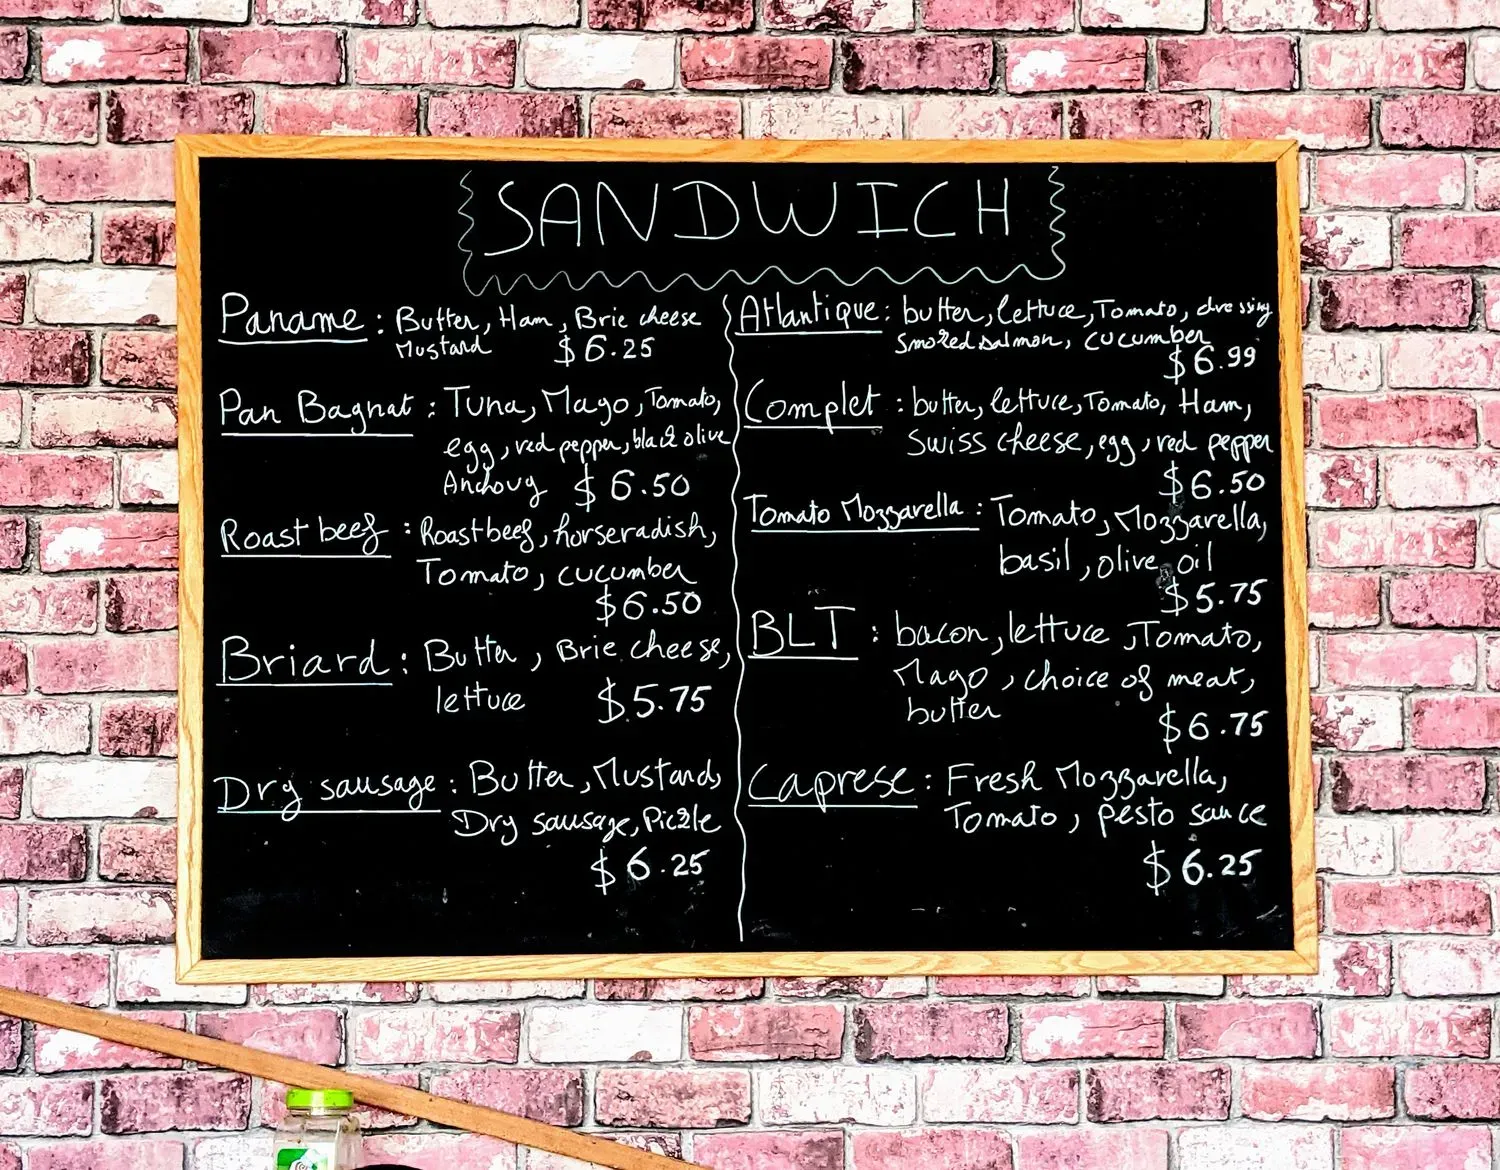 SANDWICH
Paname : Butter, Ham, Brie cheese
Mustard $6.25
Pan Bagnat : Tuna, Mayo, Tomato,
egg, red pepper, black olive
Anchovy $6.50
Roast beef : Roastbeef, horseradish,
Tomato, cucumber
$6.50
Briard : Butter, Brie cheese,
lettuce $5.75
Dry sausage : Butter, Mustard,
Dry sausage, Pickle
$6.25
Atlantique : butter, lettuce, Tomato, dressing
smoked salmon, cucumber
$6.99
Complet : butter, lettuce, Tomato, Ham,
Swiss cheese, egg, red pepper
$6.50
Tomato Mozzarella : Tomato, Mozzarella,
basil, olive oil
$5.75
BLT : bacon, lettuce, Tomato,
Mayo, choice of meat,
butter
$6.75
Caprese : Fresh Mozzarella,
Tomato, pesto sauce
$6.25